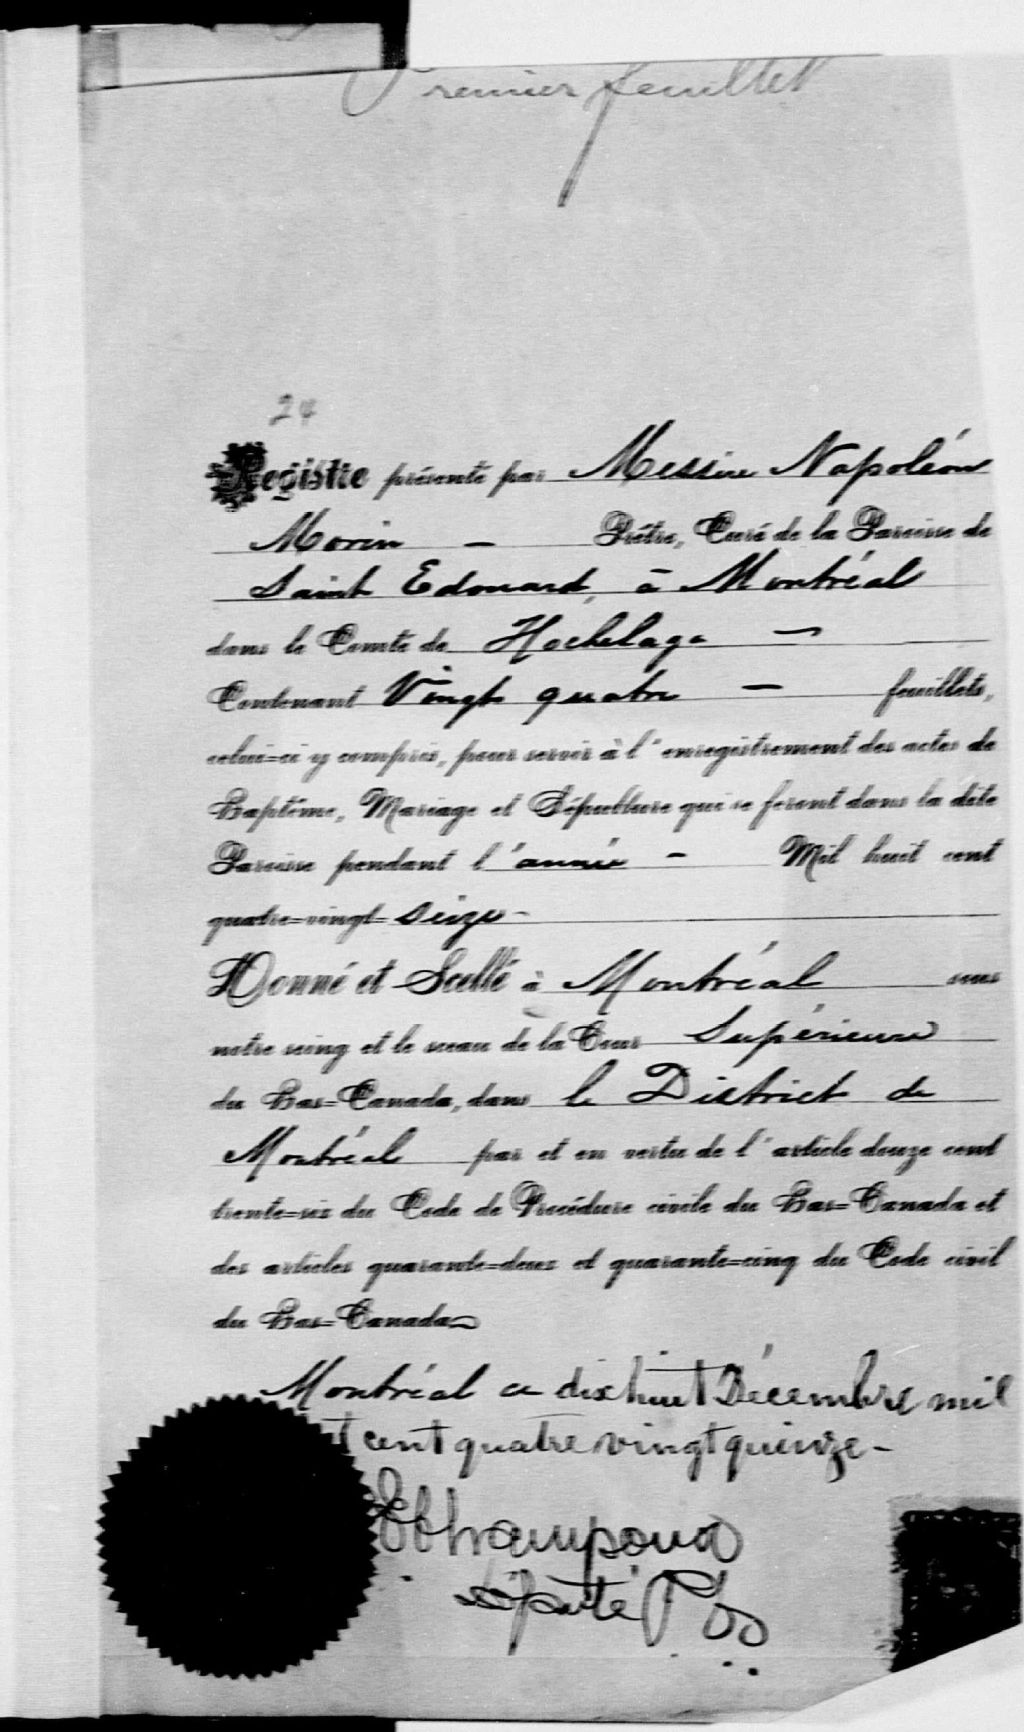 Premier feuillet
24
Registre présenté par Messire Napoléon
Morin - Prêtre, Curé de la Paroisse de
Saint Edouard, à Montréal
dans le Comté de Hochelaga -
Contenant Vingt quatre - feuillets,
celui=ci y compris, pour servir à l'enregistrement des actes de
Baptême, Mariage et Sépulture qui se feront dans la dite
Paroisse pendant l'année - Mil huit cent
quatre=vingt=seize -
Donné et Scellé à Montréal sous
notre seing et le sceau de la Cour Supérieure
du Bas=Canada, dans le District de
Montréal par et en vertu de l'article douze cent
trente=six du Code de Procédure civile du Bas=Canada et
des articles quarante=deux et quarante=cinq du Code civil
du Bas=Canada
Montréal ce dix huit Décembre mil
cent quatre vingt quinze -
Champoux
Député